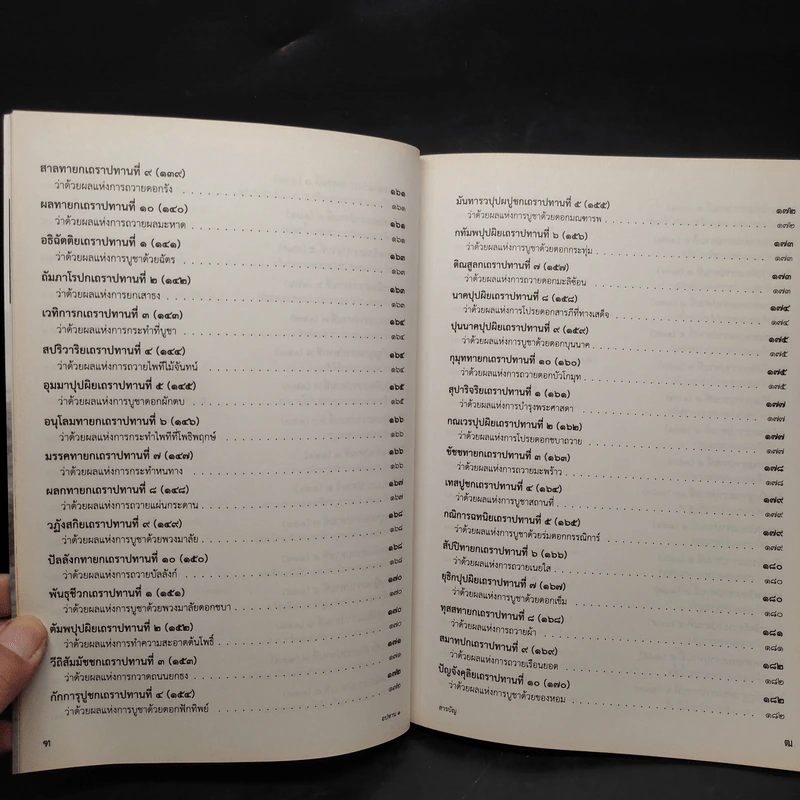 สาลทายกเถราปทานที่ ๙ (๑๓๙) ๑๖๑
ว่าด้วยผลแห่งการถวายดอกรัง ๑๖๑
ผลทายกเถราปทานที่ ๑๐ (๑๔๐) ๑๖๑
ว่าด้วยผลแห่งการถวายผลมะหาด ๑๖๑
อธิฉัตติยเถราปทานที่ ๑ (๑๔๑) ๑๖๓
ว่าด้วยผลแห่งการบูชาด้วยฉัตร ๑๖๓
ถัมภาโรปกเถราปทานที่ ๒ (๑๔๒) ๑๖๓
ว่าด้วยผลแห่งการยกเสาธง ๑๖๓
เวทิการกเถราปทานที่ ๓ (๑๔๓) ๑๖๔
ว่าด้วยผลแห่งการกระทำที่บูชา ๑๖๔
สปริวาริยเถราปทานที่ ๔ (๑๔๔) ๑๖๔
ว่าด้วยผลแห่งการถวายไพทีไม้จันทน์ ๑๖๔
อุมมาปุปผิยเถราปทานที่ ๕ (๑๔๕) ๑๖๕
ว่าด้วยผลแห่งการบูชาดอกผักตบ ๑๖๕
อนุโลมทายกเถราปทานที่ ๖ (๑๔๖) ๑๖๖
ว่าด้วยผลแห่งการกระทำไพทีที่โพธิพฤกษ์ ๑๖๖
มรรคทายกเถราปทานที่ ๗ (๑๔๗) ๑๖๖
ว่าด้วยผลแห่งการกระทำหนทาง ๑๖๖
ผลกทายกเถราปทานที่ ๘ (๑๔๘) ๑๖๗
ว่าด้วยผลแห่งการถวายแผ่นกระดาน ๑๖๗
วฏังสกิยเถราปทานที่ ๙ (๑๔๙) ๑๖๘
ว่าด้วยผลแห่งการบูชาด้วยพวงมาลัย ๑๖๘
ปัลลังกทายกเถราปทานที่ ๑๐ (๑๕๐) ๑๖๘
ว่าด้วยผลแห่งการถวายบัลลังก์ ๑๖๘
พันธุชีวกเถราปทานที่ ๑ (๑๕๑) ๑๗๐
ว่าด้วยผลแห่งการบูชาด้วยพวงมาลัยดอกชบา ๑๗๐
ตัมพปุปผิยเถราปทานที่ ๒ (๑๕๒) ๑๗๐
ว่าด้วยผลแห่งการทำความสะอาดต้นโพธิ์ ๑๗๐
วีถิสัมมัชชกเถราปทานที่ ๓ (๑๕๓) ๑๗๑
ว่าด้วยผลแห่งการกวาดถนนยกธง ๑๗๑
กักการุปูชกเถราปทานที่ ๔ (๑๕๔) ๑๗๒
ว่าด้วยผลแห่งการบูชาด้วยดอกฟักทิพย์ ๑๗๒
อปทาน ๑
ฑ
มันทารวปุปผปูชกเถราปทานที่ ๕ (๑๕๕) ๑๗๒
ว่าด้วยผลแห่งการบูชาด้วยดอกมณฑารพ ๑๗๒
กทัมพปุปผิยเถราปทานที่ ๖ (๑๕๖) ๑๗๓
ว่าด้วยผลแห่งการบูชาด้วยดอกกระทุ่ม ๑๗๓
ติณสูลกเถราปทานที่ ๗ (๑๕๗) ๑๗๓
ว่าด้วยผลแห่งการถวายดอกมะลิซ้อน ๑๗๓
นาคปุปผิยเถราปทานที่ ๘ (๑๕๘) ๑๗๔
ว่าด้วยผลแห่งการโปรยดอกสารภีที่ทางเสด็จ ๑๗๔
ปุนนาคปุปผิยเถราปทานที่ ๙ (๑๕๙) ๑๗๕
ว่าด้วยผลแห่งการบูชาด้วยดอกบุนนาค ๑๗๕
กุมุททายกเถราปทานที่ ๑๐ (๑๖๐) ๑๗๕
ว่าด้วยผลแห่งการถวายดอกบัวโกมุท ๑๗๕
สุปาริจริยเถราปทานที่ ๑ (๑๖๑) ๑๗๗
ว่าด้วยผลแห่งการบำรุงพระศาสดา ๑๗๗
กณเวรปุปผิยเถราปทานที่ ๒ (๑๖๒) ๑๗๗
ว่าด้วยผลแห่งการโปรยดอกชบาถวาย ๑๗๗
ขัชชทายกเถราปทานที่ ๓ (๑๖๓) ๑๗๘
ว่าด้วยผลแห่งการถวายมะพร้าว ๑๗๘
เทสปูชกเถราปทานที่ ๔ (๑๖๔) ๑๗๙
ว่าด้วยผลแห่งการบูชาสถานที่ ๑๗๙
กณิการฉทนิยเถราปทานที่ ๕ (๑๖๕) ๑๗๙
ว่าด้วยผลแห่งการบูชาด้วยร่มดอกกรรณิการ์ ๑๗๙
สัปปิทายกเถราปทานที่ ๖ (๑๖๖) ๑๘๐
ว่าด้วยผลแห่งการถวายเนยใส ๑๘๐
ยุธิกปุปผิยเถราปทานที่ ๗ (๑๖๗) ๑๘๐
ว่าด้วยผลแห่งการบูชาด้วยดอกเข็ม ๑๘๐
ทุสสทายกเถราปทานที่ ๘ (๑๖๘) ๑๘๑
ว่าด้วยผลแห่งการถวายผ้า ๑๘๑
สมาทปกเถราปทานที่ ๙ (๑๖๙) ๑๘๒
ว่าด้วยผลแห่งการถวายเรือนยอด ๑๘๒
ปัญจังคุลิยเถราปทานที่ ๑๐ (๑๗๐) ๑๘๒
ว่าด้วยผลแห่งการบูชาด้วยของหอม ๑๘๒
สารบัญ
ฒ